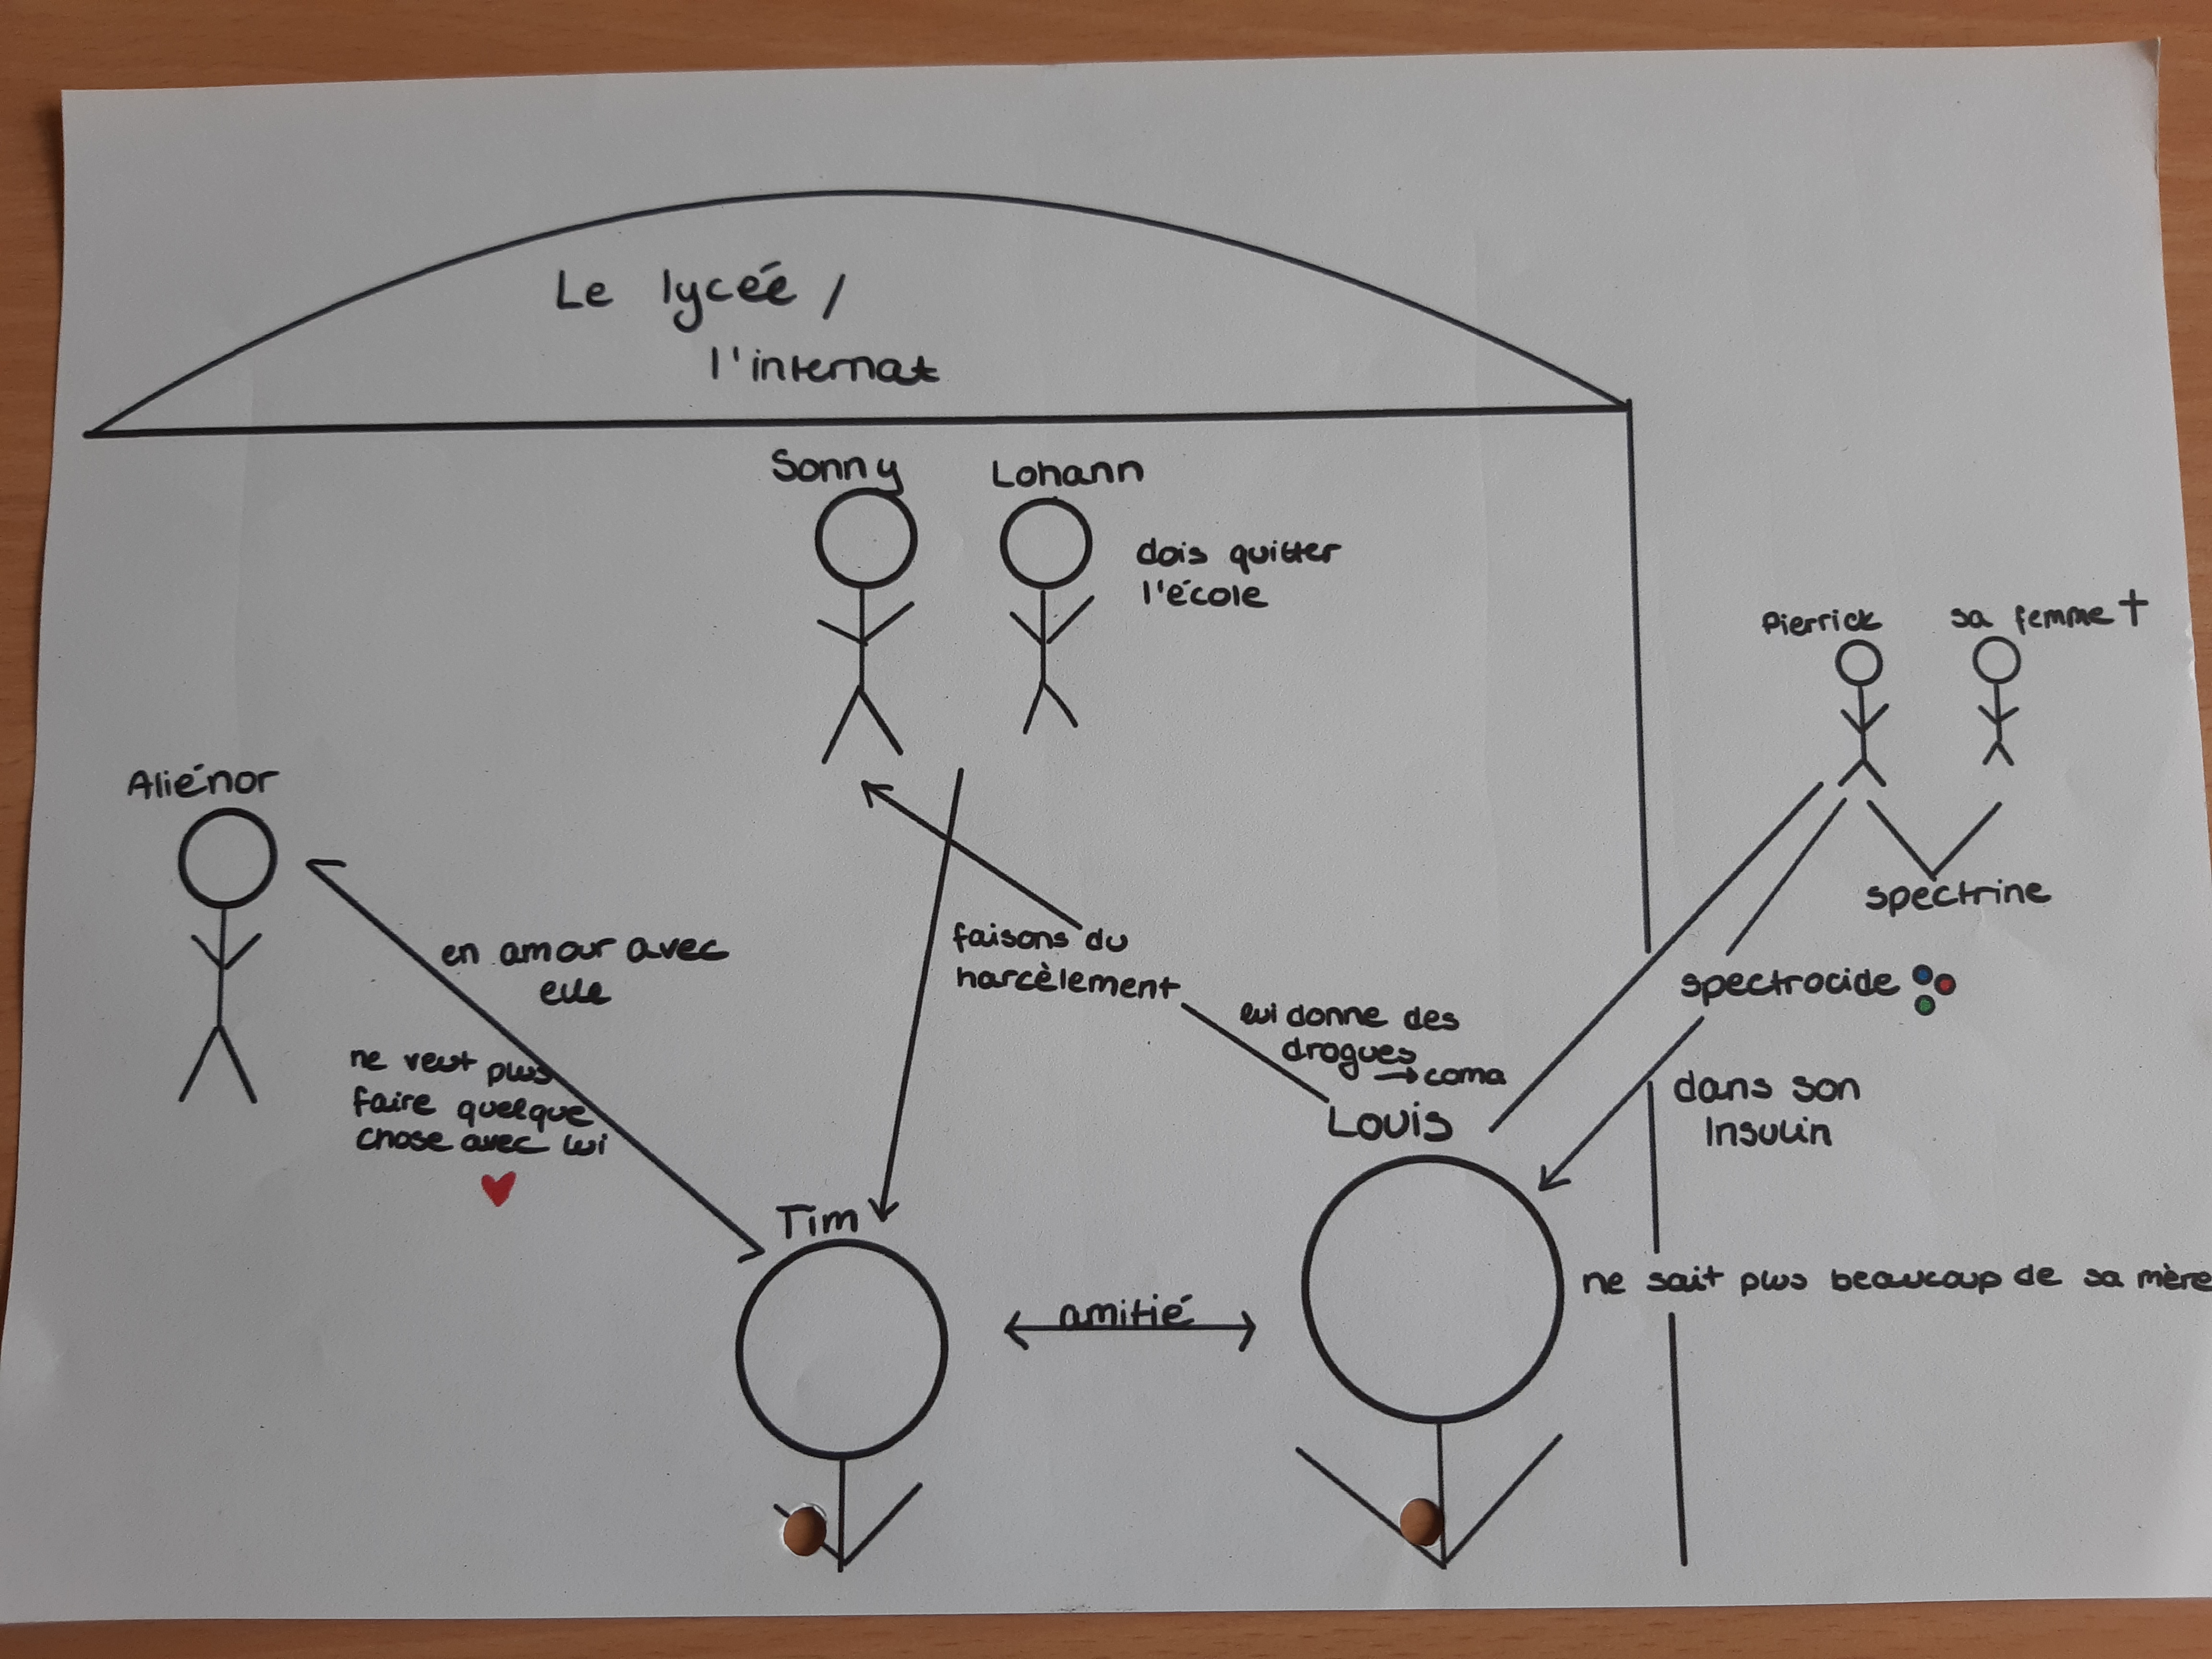 Le lyceé /
l'internat
Sonny
Lohann
dois quitter
l'école
Pierrick
sa femme †
spectrine
Aliénor
en amour avec
elle
ne veut plus
faire quelque
chose avec lui
faisons du
harcèlement
lui donne des
drogues
→ coma
spectrocide
dans son
Insulin
Louis
Tim
amitié
ne sait plus beaucoup de sa mère